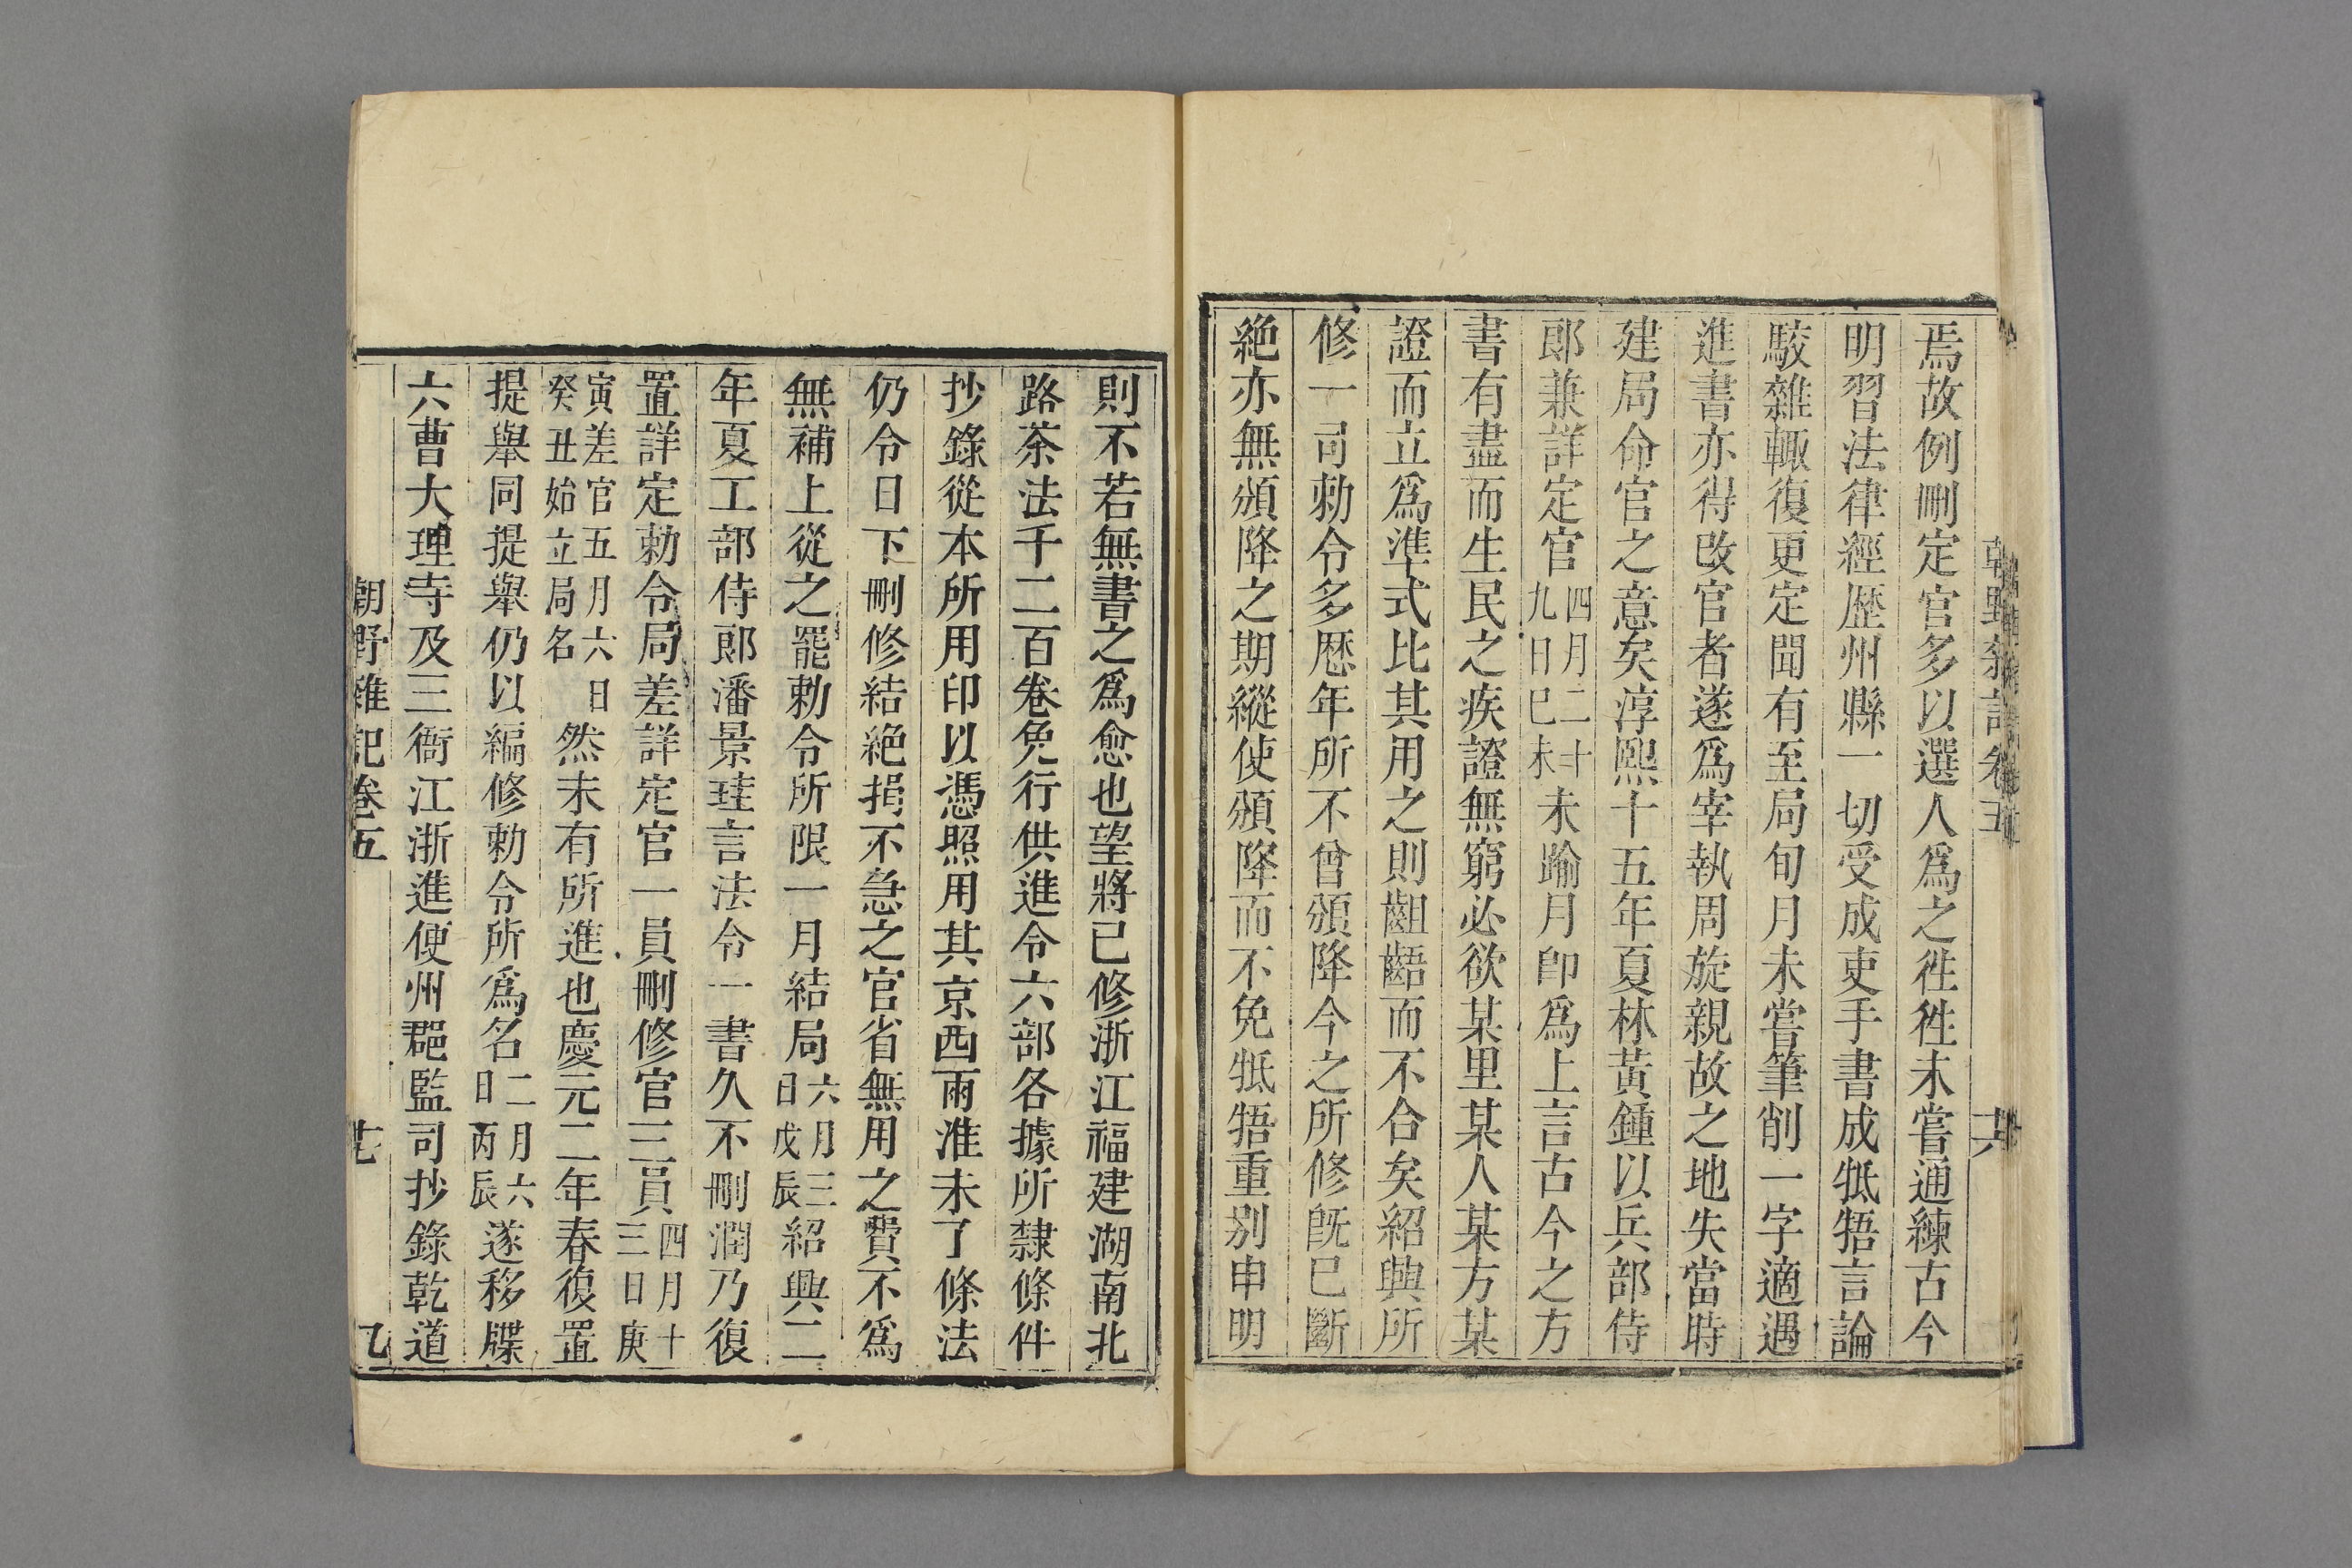 焉故例刪定官多以選人爲之徃徃未嘗通練古今
明習法律經歴州縣一切受成吏手書成牴牾言論
駮雜輙復更定聞有至局旬月未嘗筆削一字適遇
進書亦得改官者遂爲宰執周旋親故之地失當時
建局命官之意矣淳熙十五年夏林黃鍾以兵部侍
郎兼詳定官四月二十九日巳未未踰月卽爲上言古今之方
書有盡而生民之疾證無窮必欲某里某人某方某
證而立爲準式比其用之則齟齬而不合矣紹興所
修一司勅令多歴年所不曾頒降今之所修旣已斷
絶亦無頒降之期縱使頒降而不免牴牾重别申明
則不若無書之爲愈也望將已修浙江福建湖南北
路茶法千二百卷免行供進令六部各據所隸條件
抄錄從本所用印以憑照用其京西兩淮未了條法
仍令日下刪修結絶捐不急之官省無用之費不爲
無補上從之罷勅令所限一月結局六月三日戊辰紹興二
年夏工部侍郎潘景珪言法令一書久不刪潤乃復
置詳定勅令局差詳定官一員刪修官三員四月十三日庚
寅差官五月六日癸丑始立局名然未有所進也慶元二年春復置
提舉同提舉仍以編修勅令所爲名二月六日丙辰遂移牒
六曹大理寺及三衙江浙進便州郡監司抄錄乾道
朝野雜記卷五